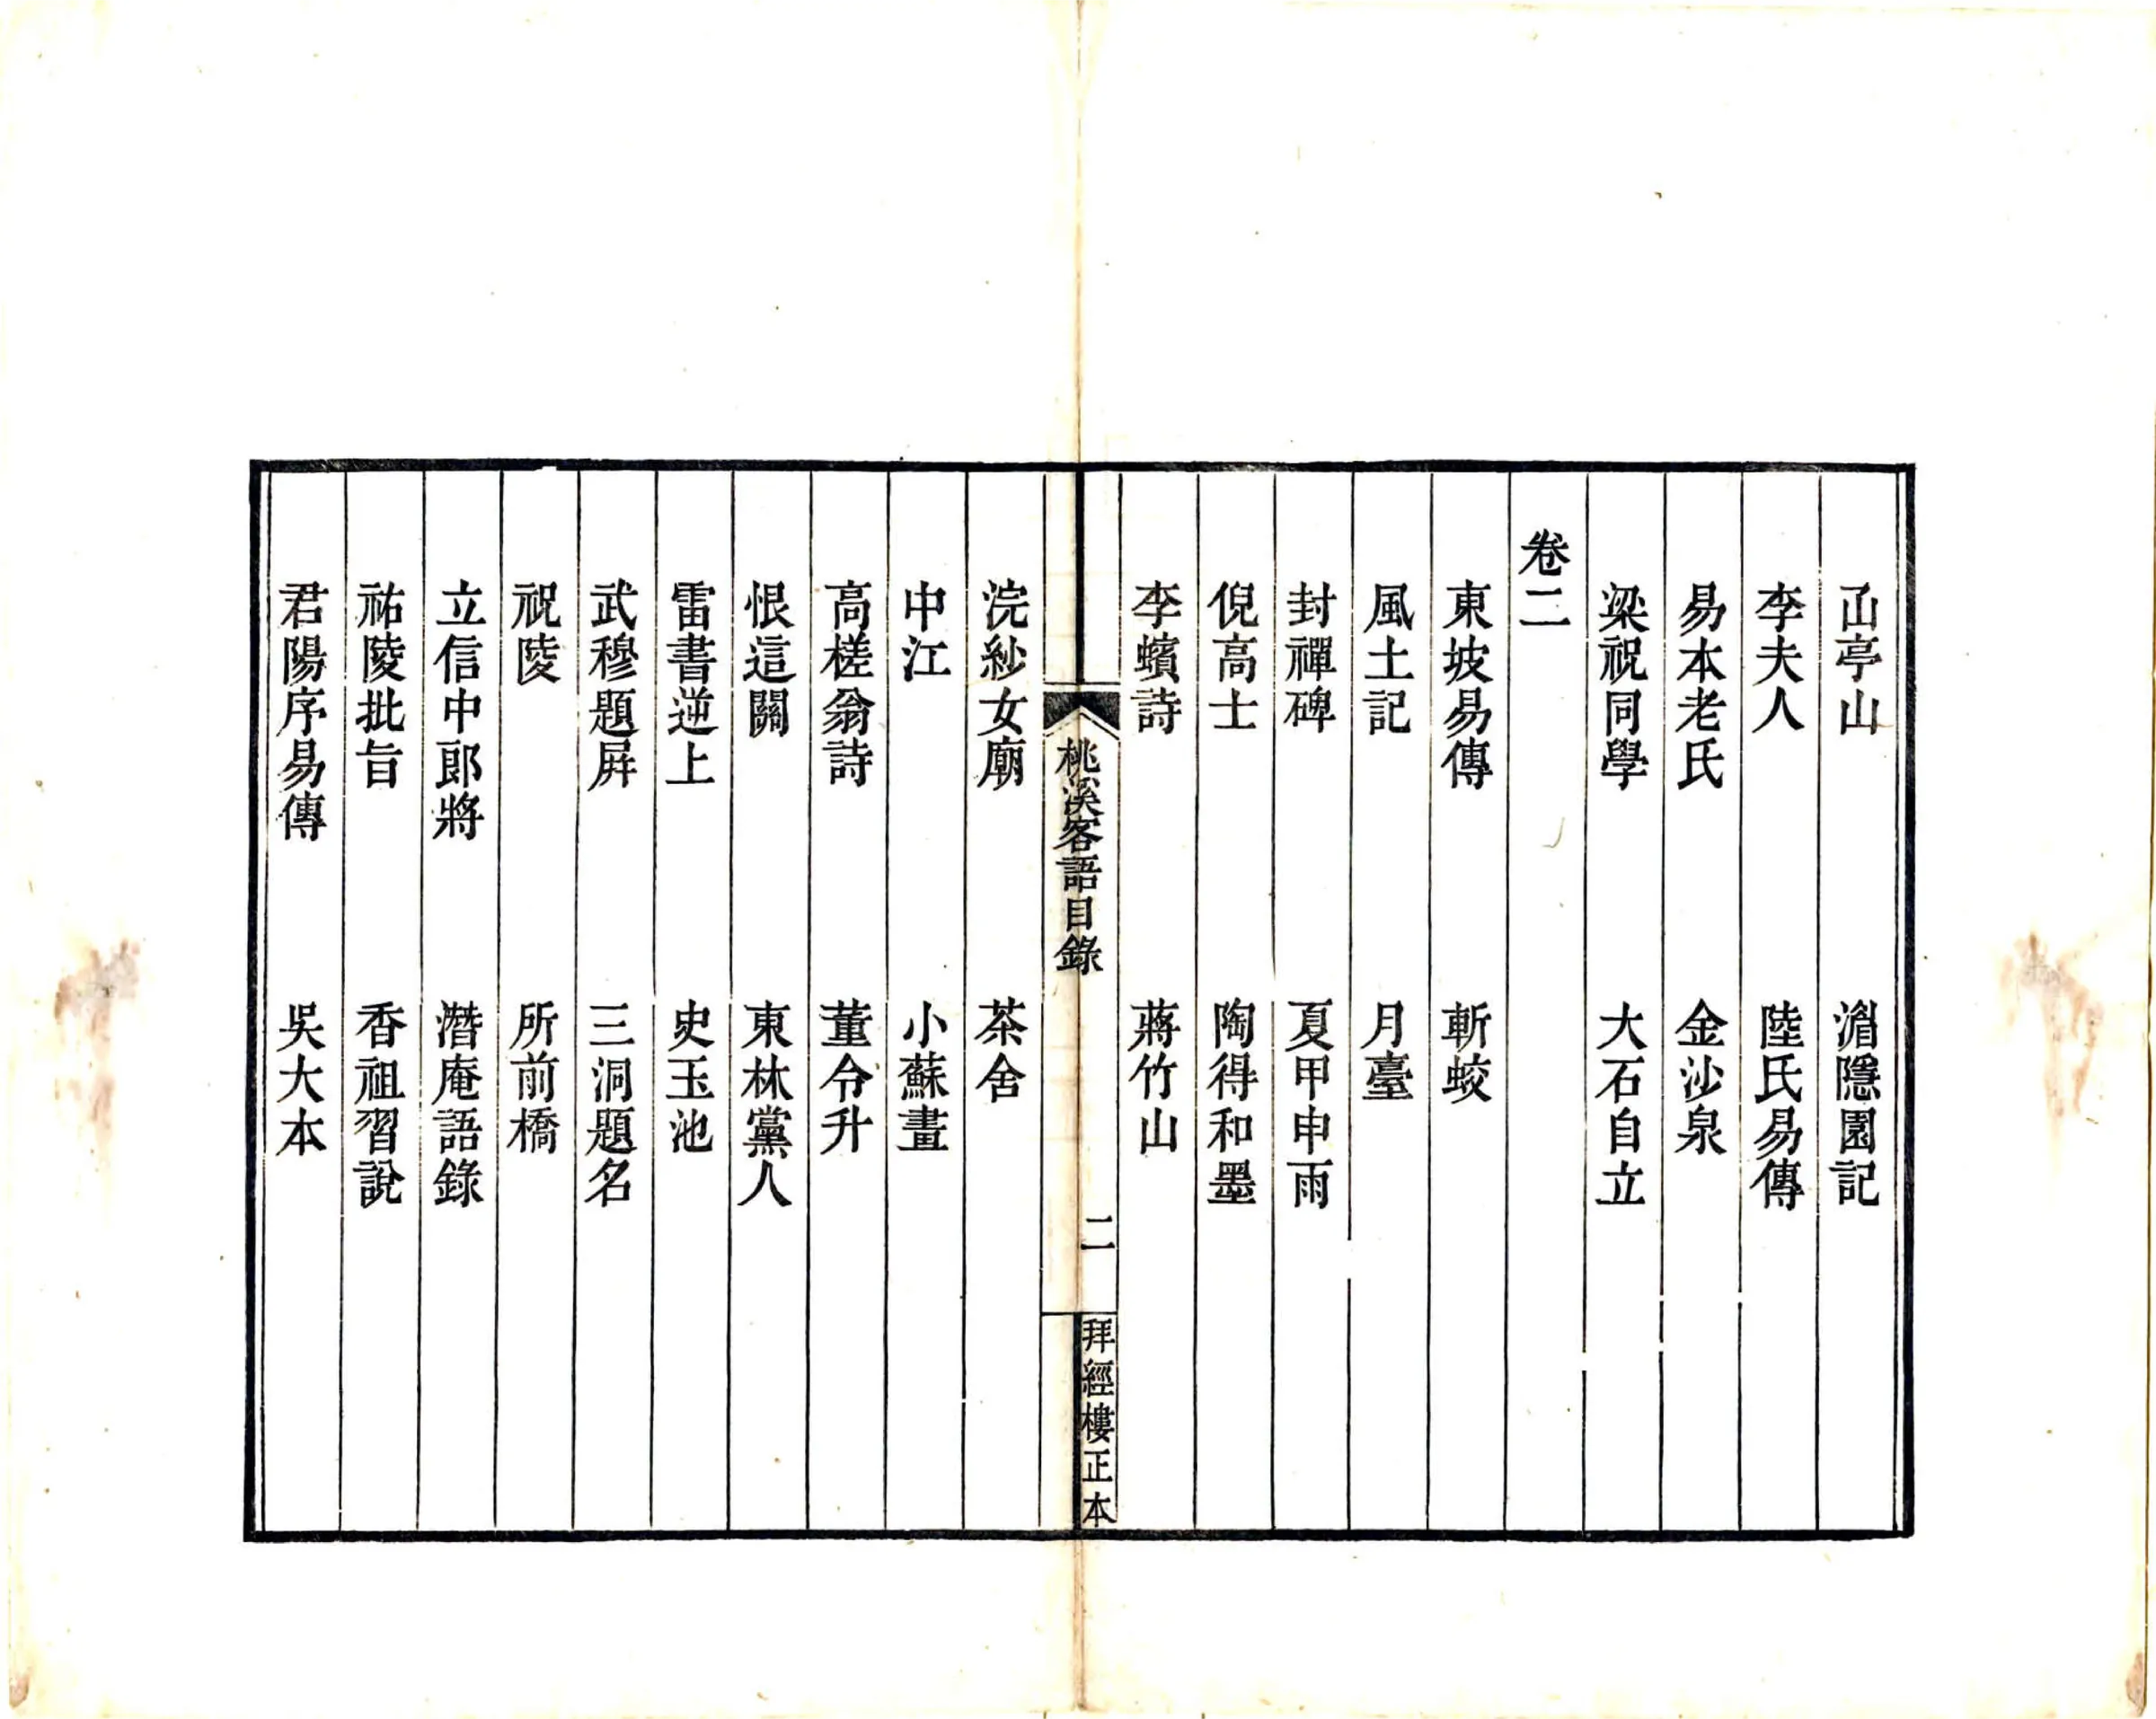 亭山　隱園記
李夫人　陸氏易傳
易本老氏　金沙泉
梁祝同學　大石自立
卷二
東坡易傳　斬蛟
風土記　月臺
封禪碑　夏甲申雨
倪高士　陶得和墨
李蠙詩　蔣竹山
桃溪客語目錄　二　拜經樓正本
浣紗女廟　茶舍
中江　小蘇畫
高槎翁詩　董令升
恨這關　東林黨人
雷書逆上　史玉池
武穆題屏　三洞題名
祝陵　所前橋
立信中郎將　潛庵語錄
祐陵批旨　香祖習說
君陽序易傳　吳大本